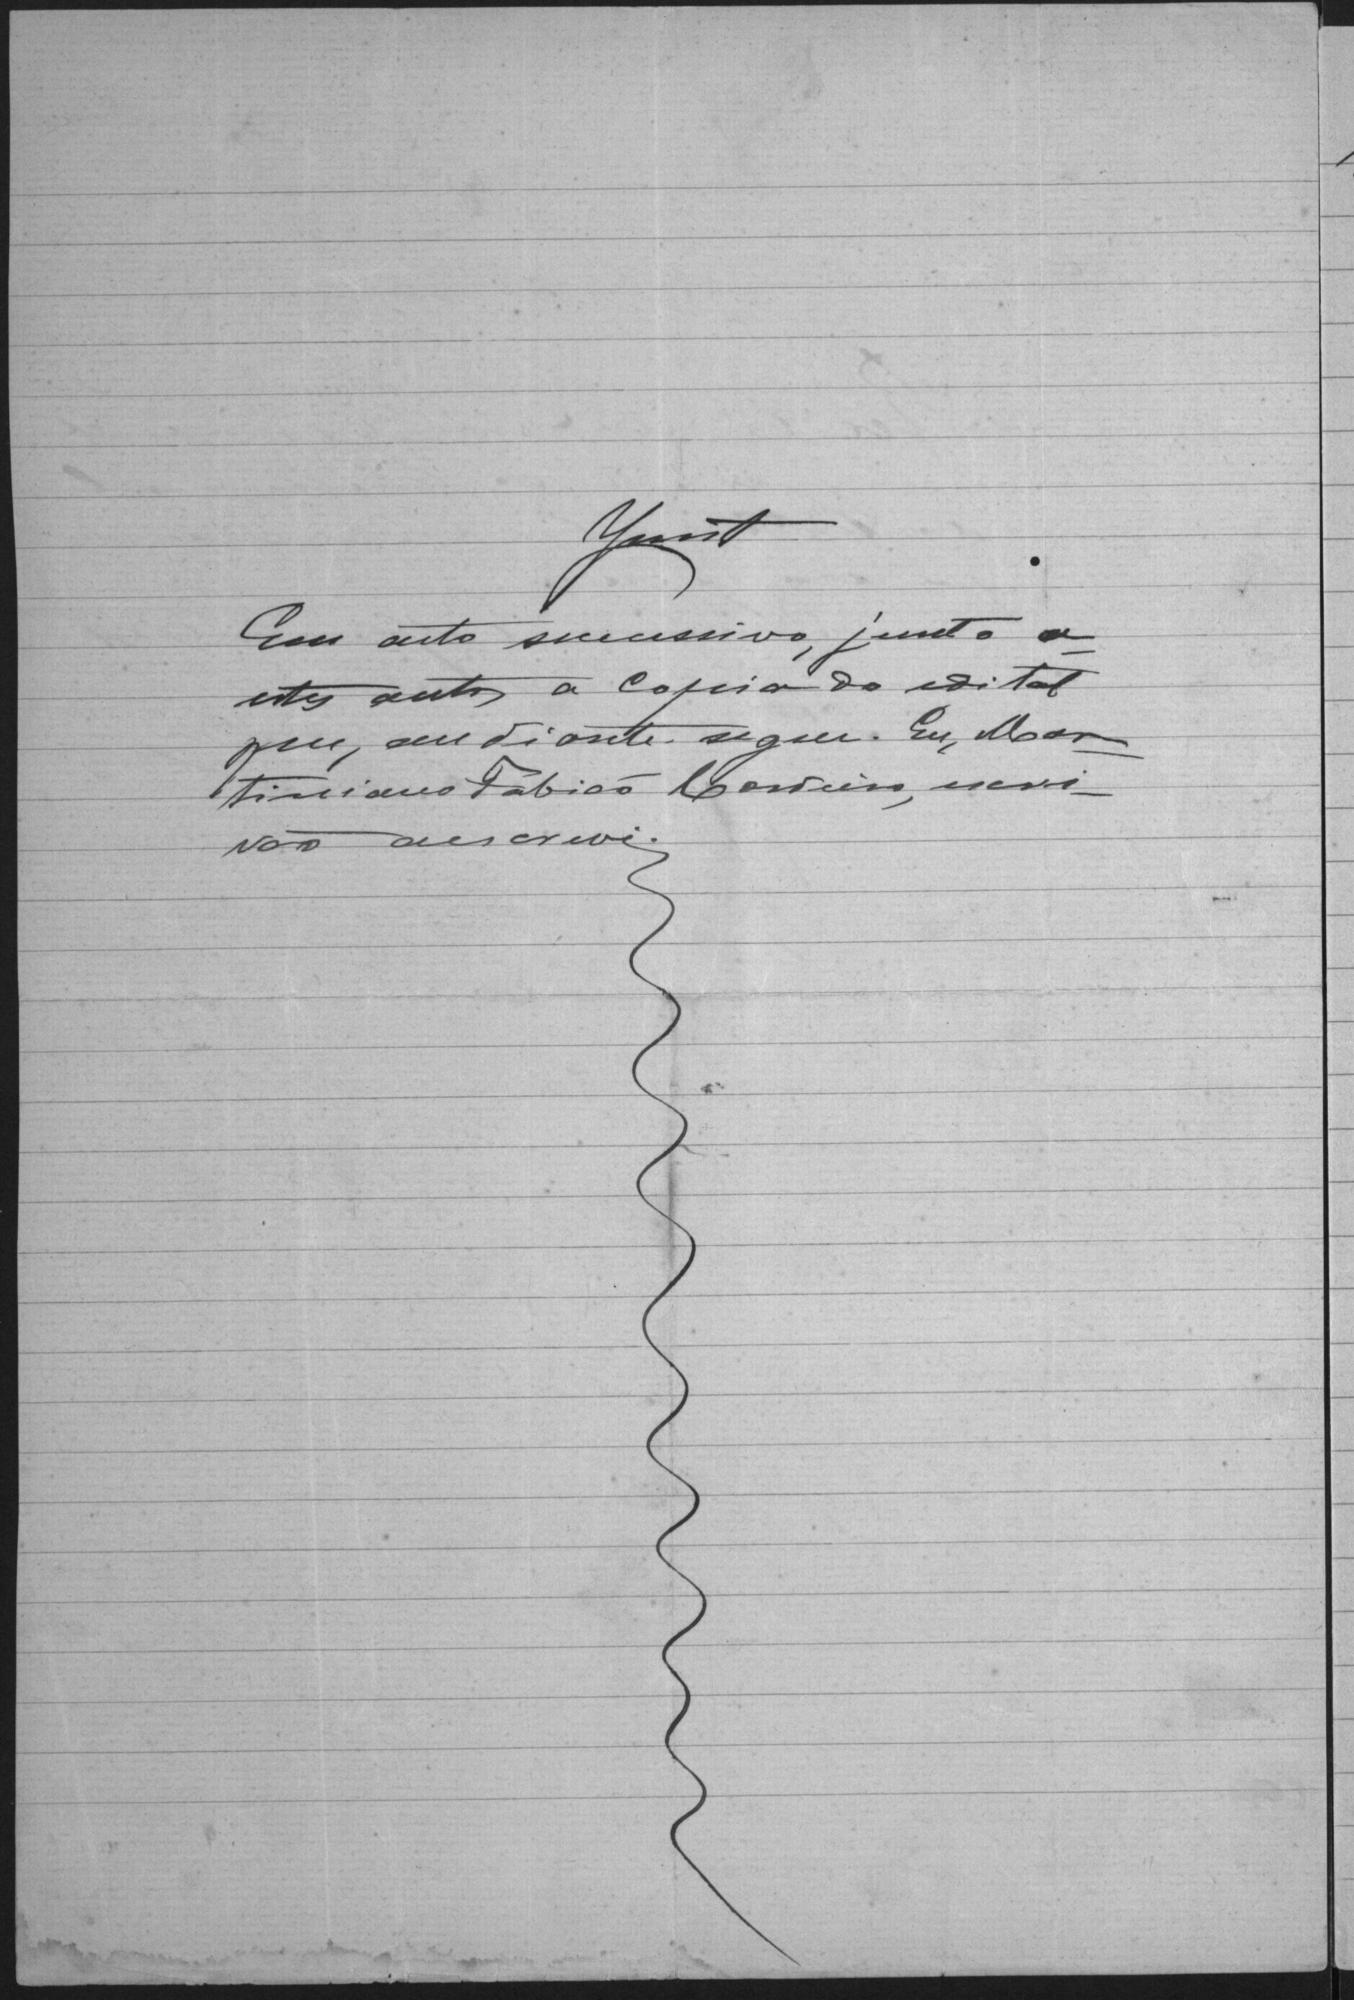 Junt
Em acto successivo, junto a
estes autos a copia do edital
que, em diante segue. Eu, Mar
tiniano Fabião Cordeiro, escri
vão o escrevi.